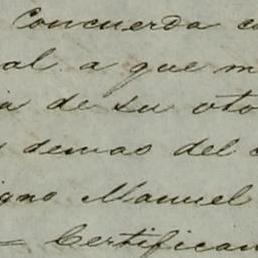 Concuerda co
al a que m
a de su oto
demas del c
igno Manuel
= Certifican